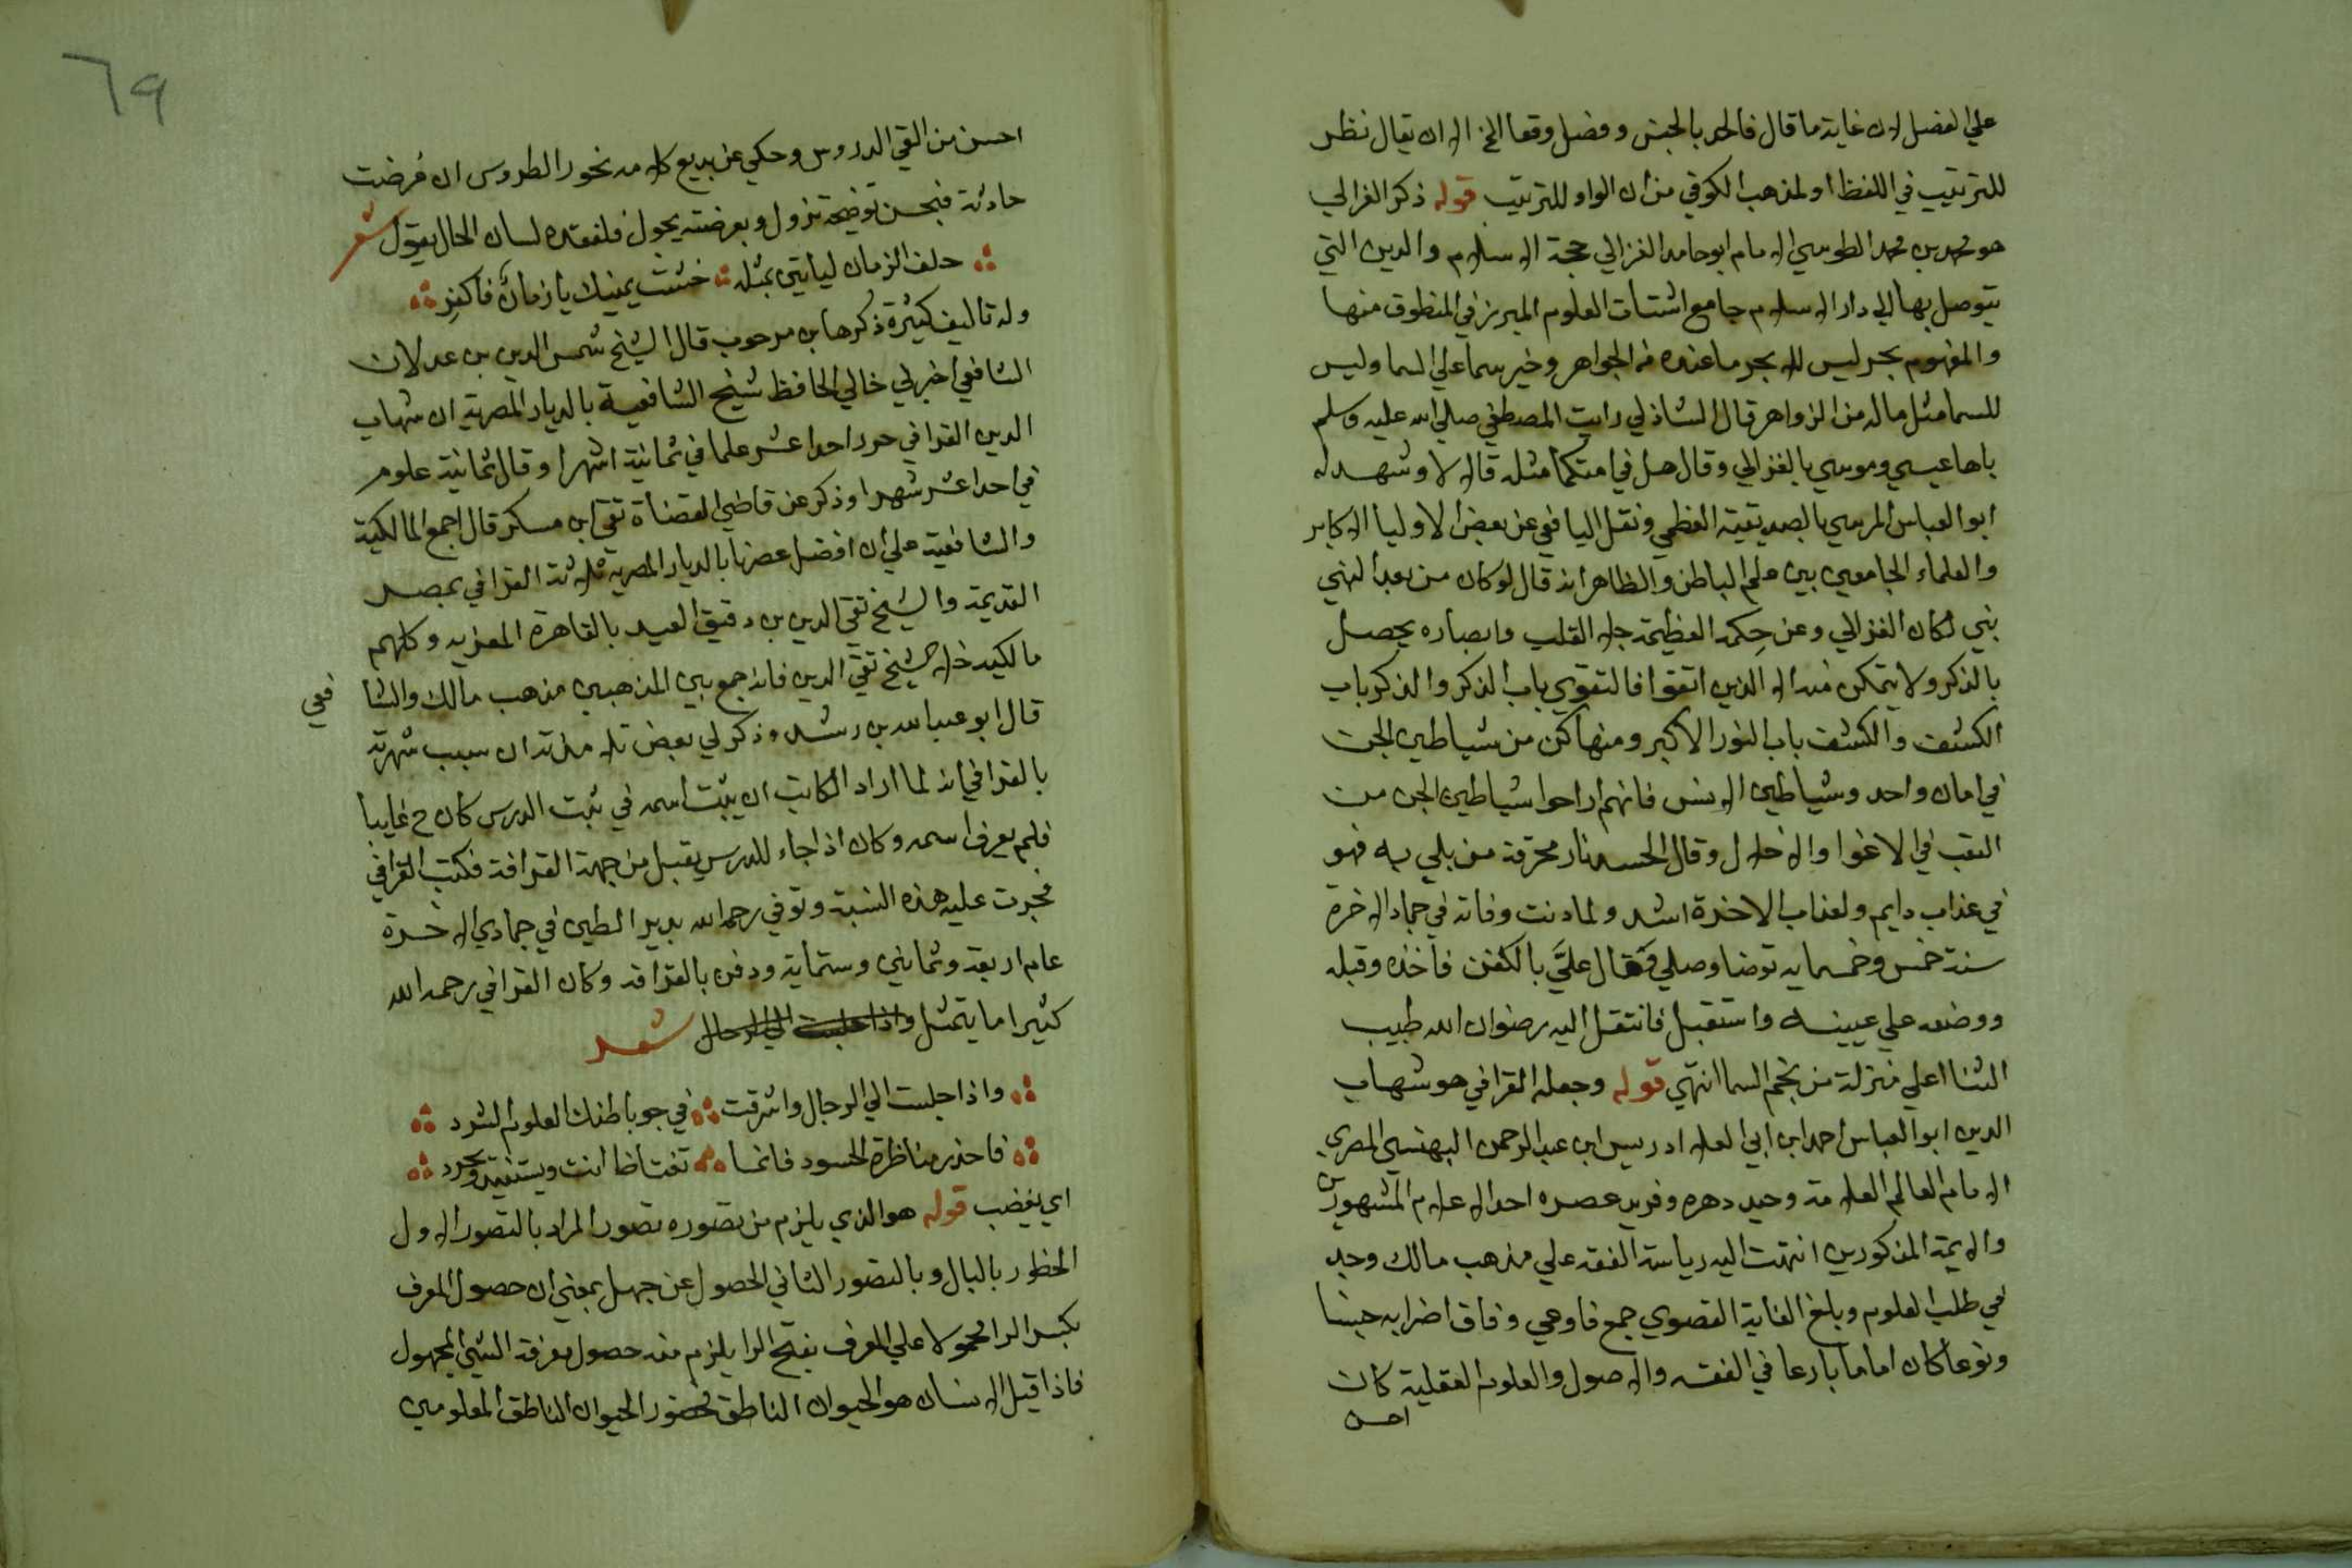 علي الفصل لان غاية ما قال فالحد بالجنس وفصل وقعا الخ الا ان يقال نظر
للترتيب في اللفظ او لمذهب الكوفي من ان الواو للترتيب قوله ذكر الغزالي
هو محمد بن محمد الطوسي الامام ابو حامد الغزالي حجة الاسلام والدين التي
يتوصل بها الي دار السلام جامع اشتات العلوم المبرز في المنطوق منها
والمفهوم بحر ليس للبحر ما عنده من الجواهر وخير سما علي السما وليس
للسما مثل ماله من الزواهر قال الشاذلي رايت المصطفي صلي الله عليه وسلم
باها عيسي وموسي بالغزالي وقال هل في امتكما مثله قالا لا وشهد له
ابو العباس المرسي بالصديقية العظمي ونقل اليافعي عن بعض الاوليا الاكابر
والعلماء الجامعين بين علم الباطن والظاهر انه قال لو كان من بعد النبي
نبي لكان الغزالي وعن حكمه العظيمة جلا القلب وابصاره يحصل
بالذكر ولا يتمكن منه الا الذين اتقوا فالتقوي باب الذكر والذكر باب
الكشف والكشف باب النور الاكبر ومنها كن من شياطين الجن
في امان واحد وشياطين الانس فانهم اراحوا شياطين الجن من
التعب في الاغوا والاضلال وقال الحسد نار محرقة من بلي به فهو
في عذاب دايم ولعذاب الاخرة اشد ولما دنت وفاته في جماد الاخرة
سنة خمس وخمسمايه توضا وصلي وقال عليَّ بالكفن فاخذه وقبله
ووضعه علي عينيه واستقبل فانتقل اليه رضوان الله طيب
الثنا اعلي منزلة من نجم السما انتهي قوله وجعله القرافي هو شهاب
الدين ابو العباس احمد ابن ابي العلا ادريس ابن عبد الرحمن البهنسي المصري
الامام العالم العلامة وحيد دهره وفريد عصره احد الاعلام المشهورين
والايمة المذكورين انتهت اليه رياسة الفقه علي مذهب مالك وجد
في طلب العلوم وبلغ الغاية القصوي جمع فاوعي وفاق اضرابه جنسا
ونوعا كان اماما بارعا في الفقه والاصول والعلوم العقلية كان
احسن
٦٩
احسن من القي الدروس وحكي عن بديع كلامه نحور الطروس ان فرضت
حادثة فبحسن توضيحه تزول وبعرضته يحول فلفقده لسان الحال يقول شعر
حلف الزمان لياتين بمثله حنثت يمينك يا زمان فاكفر
وله تاليف كثيرة ذكرها بن مرحوب قال الشيخ شمس الدين بن عدلان
الشافعي اخبرني خالي الحافظ شيخ الشافعية بالديار المصرية ان شهاب
الدين القرافي حرر احدا عشر علما في ثمانية اشهر او قال ثمانية علوم
في احدا عشر شهرا وذكر عن قاضي القضاة تقي ابن مسكر قال اجمع المالكية
والشافعية علي ان افضل عصرنا بالديار المصريه ثلاثة القرافي بمصر
القديمة والشيخ تقي الدين بن دقيق العيد بالقاهرة المعزيه وكلهم
مالكيه خلا الشيخ تقي الدين فانه جمع بين المذهبين مذهب مالك والشا فعي
قال ابو عبد الله بن رشد وذكر لي بعض تلامذته ان سبب شهرته
بالقرافي انه لما اراد الكاتب ان يثبت اسمه في ثبت الدرس كان ح غايبا
فلم يعرف اسمه وكان اذا جاء للدرس يقبل من جهة القرافة فكتب القرافي
فجرت عليه هذه النسبة وتوفي رحمه الله بدير الطين في جمادي الاخرة
عام اربعة وثمانين وستماية ودفن بالقرافه وكان القرافي رحمه الله
كثيرا ما يتمثل واذا جلست الي الرجال شعر
واذا جلست الي الرجال واشرقت في جو باطنك العلوم الشرد
فاحذر مناظرة الحسود فانما تغتاظ انت ويستفيد ويحرد
اي يغضب قوله هو الذي يلزم من تصوره تصور المراد بالتصور الاول
الخطور بالبال وبالتصور الثاني الحصول عن جهل بمعني ان حصول المعرف
بكسر الرا محمولا علي المعرف بفتح الرا يلزم منه حصول معرفة الشيئ المجهول
فاذا قيل الانسان هو الحيوان الناطق فحضور الحيوان الناطق المعلومين